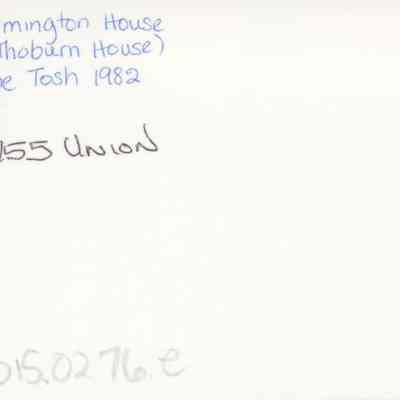 mington House
Thoburn House)
e Tosh 1982
155 Union
015.0276.e